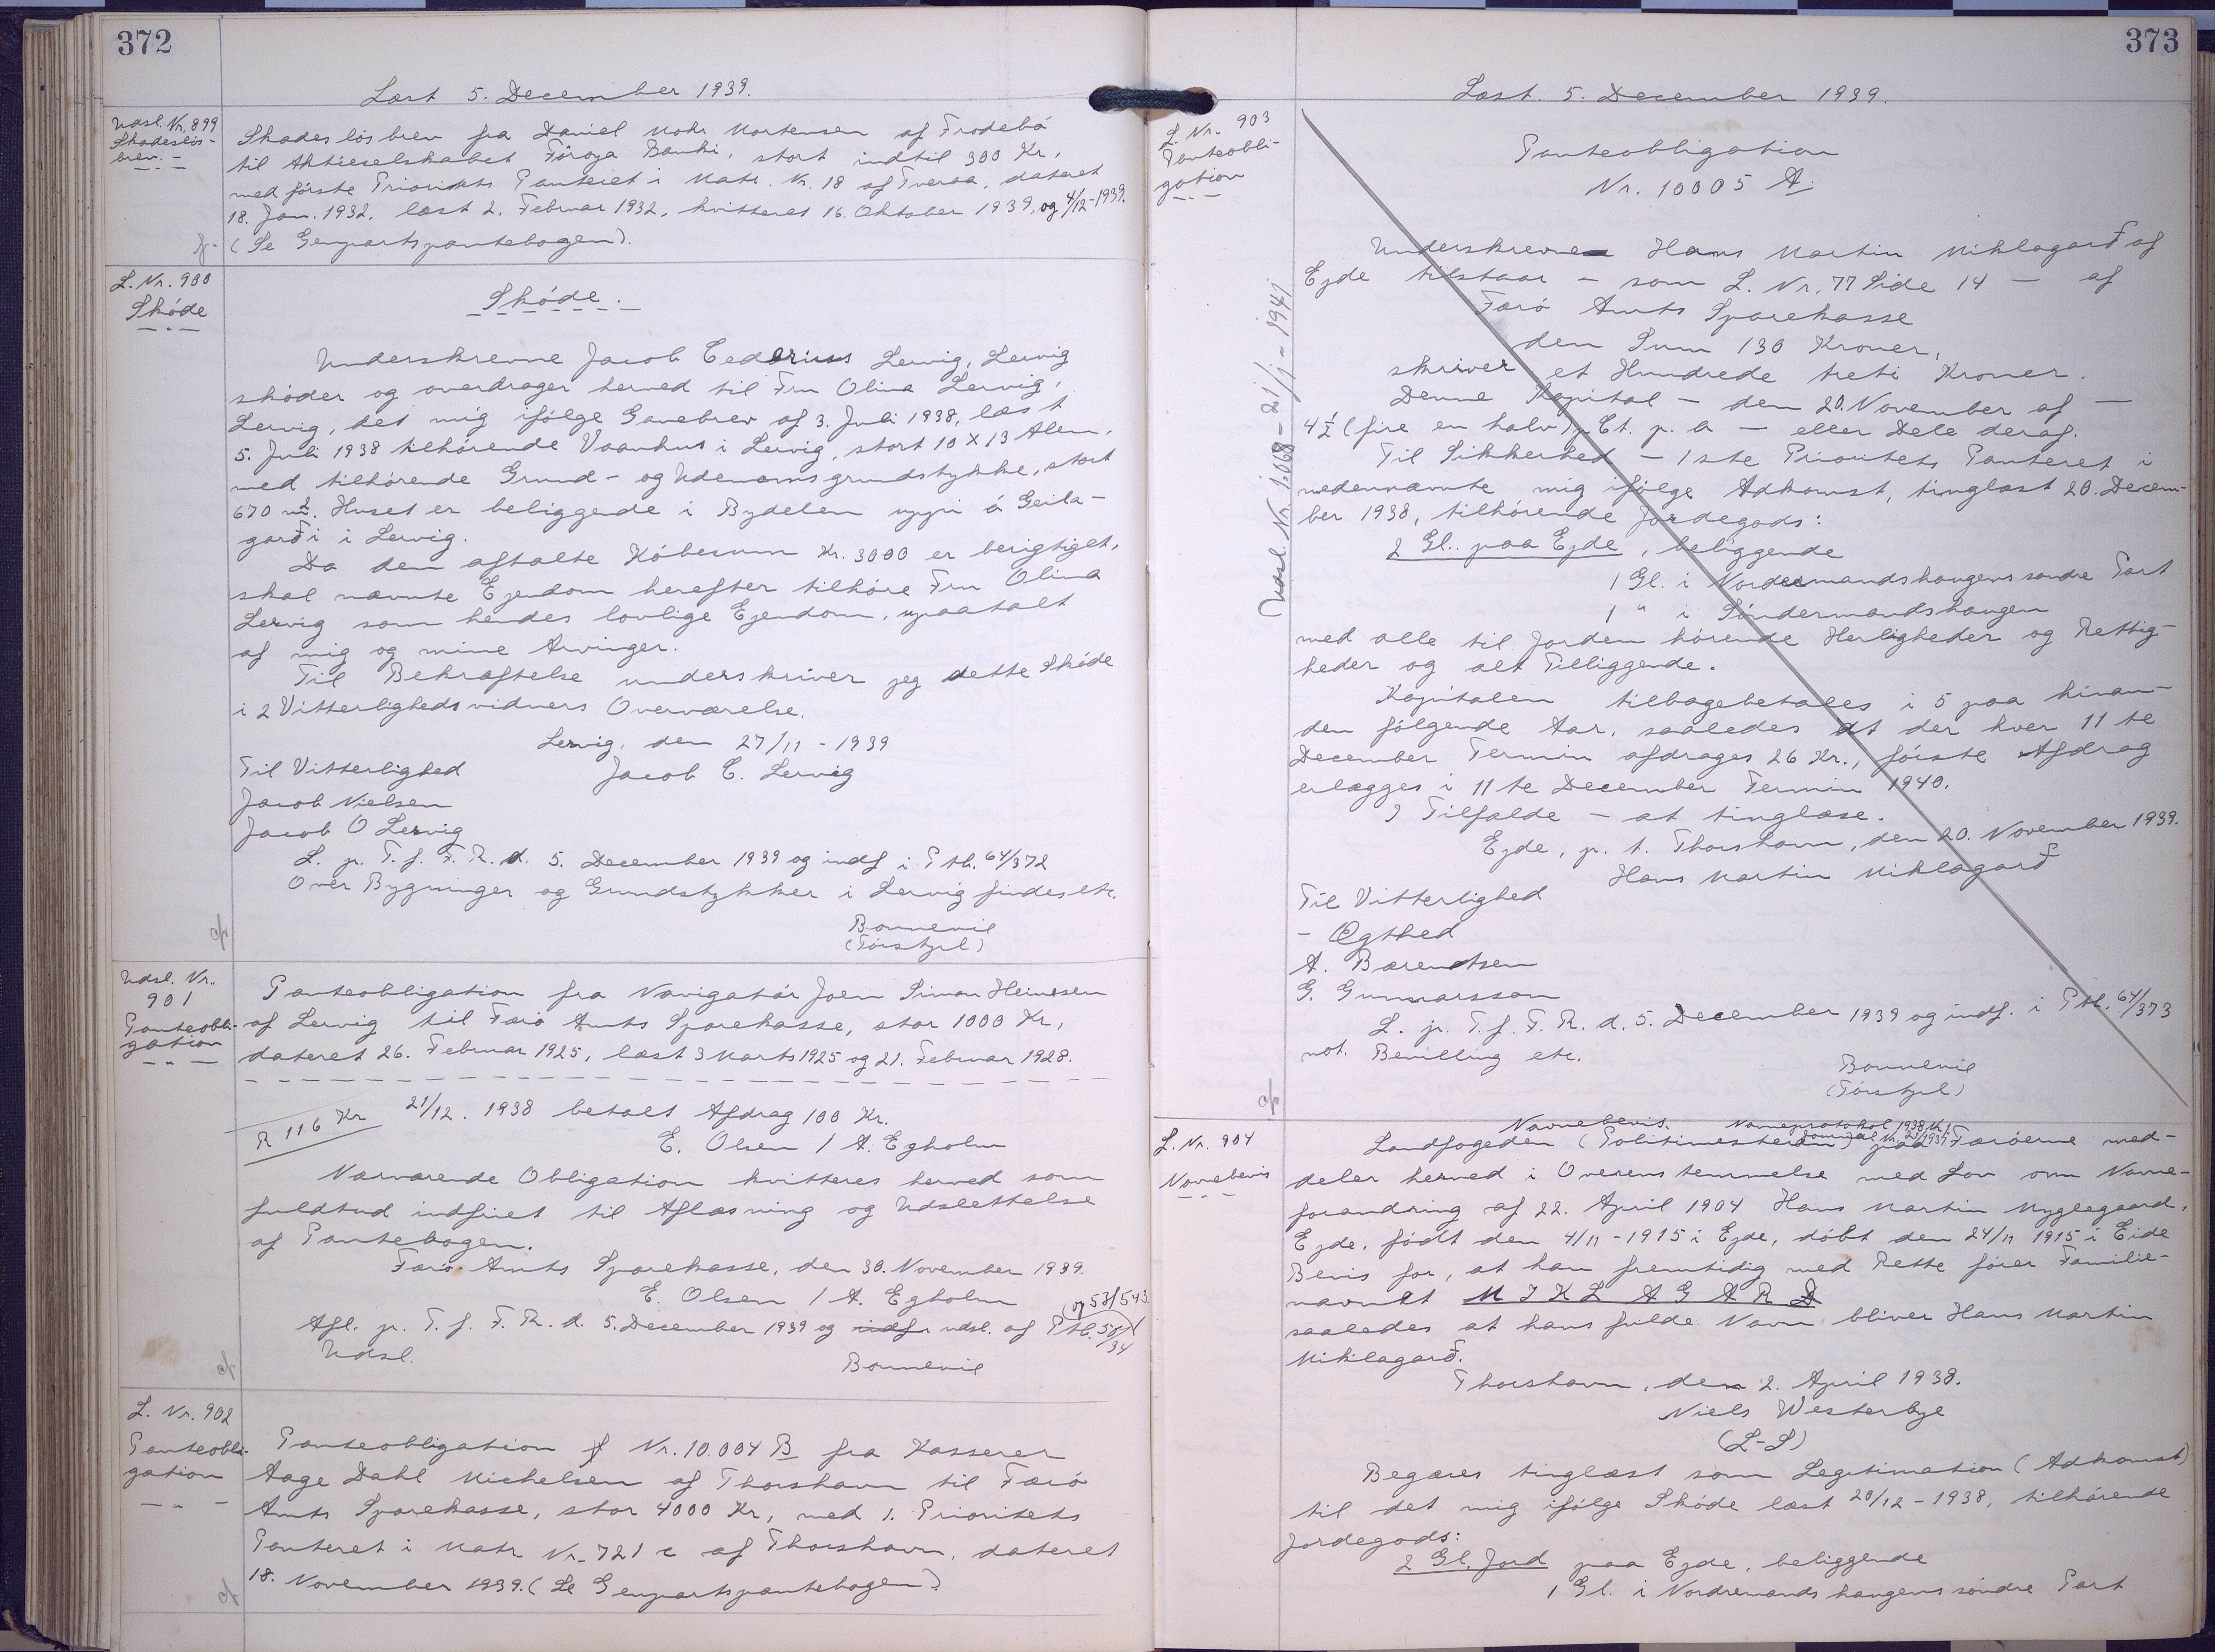 372
Læst 5. December 1939.
Udsl. Nr. 899
Skadeslös-
brev.
Skadeslösbrev fra Daniel Mohr Mortensen af Frodebö
til Aktieselskabet Föroya Banki, stort indtil 300 Kr,
med förste Prioritets Panteret i Matr. Nr. 18 af Tveraa, dateret
18. Jan. 1932, læst 2. Februar 1932, kvitteret 16. Oktober 1939, og 4/12-1939.
(Se Genpartspantebogen).
L. Nr. 900
Sköde
Sköde.
Underskrevne Jacob Cederius Lervig, Lervig
sköder og overdrager herved til Fru Olina Lervig,
Lervig, det mig ifölge Gavebrev af 3. Juli 1938, læst
5. Juli 1938 tilhörende Vaanhus i Lervig, stort 10 X 13 Alen,
med tilhörende Grund- og Udenomsgrundstykke, stort
670 m². Huset er beliggende i Bydelen uppi á Geila-
garði i Lervig.
Da den aftalte Köbesum Kr. 3000 er berigtiget,
skal nævnte Ejendom herefter tilhöre Fru Olina
Lervig som hendes lovlige Ejendom, upaatalt
af mig og mine Arvinger.
Til Bekræftelse underskriver jeg dette Sköde
i 2 Vitterlighedsvidners Overværelse.
Lervig, den 27/11 - 1939
Til Vitterlighed Jacob C. Lervig
Jacob Nielsen
Jacob O Lervig
L. p. T. f. F. R. d. 5. December 1939 og indf i Ptb. 64/372
Over Bygninger og Grundstykker i Lervig findes etc.
Bonnevie
(Törstzel)
Udsl. Nr.
901
Panteobli-
gation
Panteobligation fra Navigatör Joen Simon Heinesen
af Lervig til Færö Amts Sparekasse, stor 1000 Kr,
dateret 26. Februar 1925, læst 3 Marts 1925 og 21. Februar 1928.
R 116 Kr 21/12. 1938 betalt Afdrag 100 Kr.
E. Olsen / A. Egholm
Nærværende Obligation kvitteres herved som
fuldtud indfriet til Aflæsning og Udslettelse
af Pantebogen.
Færö Amts Sparekasse, den 30. November 1939.
E. Olsen / A. Egholm
Afl. p. T. f. F. R. d. 5. December 1939 og indf. udsl. af Ptb. 50/34 (og 53/543
Udsl.
Bonnevie
L. Nr. 902
Panteobli-
gation
Panteobligation Nr. 10.004 B fra Kasserer
Aage Dahl Michelsen af Thorshavn til Færö
Amts Sparekasse, stor 4000 Kr, med 1. Prioritets
Panteret i Matr Nr. 721 c af Thorshavn, dateret
18. November 1939. (Se Genpartspantebogen).
373
Læst. 5. December 1939.
L. Nr. 903
Panteobli-
gation
Udsl. Nr. 1.008 - 21/1 - 1941
Panteobligation
Nr. 10005 A.
Underskrevne Hans Martin Miklagarð af
Ejde tilstaar - som L. Nr. 77 Side 14 - af
Færö Amts Sparekasse
den Sum 130 Kroner,
skriver et Hundrede treti Kroner.
Denne Kapital - den 20. November af -
4½ (fire en halv) pCt. p. a - eller Dele deraf.
Til Sikkerhed - 1ste Prioritets Panteret i
nedennævnte mig ifölge Adkomst, tinglæst 20. Decem-
ber 1938, tilhörende Jordegods:
2 Gl. paa Ejde, beliggende
1 Gl. i Nordremandshaugens søndre Part
1 " i Söndermandshaugen
med alle til Jorden hörende Herligheder og Rettig-
heder og alt Tilliggende.
Kapitalen tilbagebetales i 5 paa hinan-
den fölgende Aar, saaledes at der hver 11te
December Termin afdrages 26 Kr., förste Afdrag
erlægges i 11te December Termin 1940.
I Tilfælde - at tinglæse.
Ejde, p. t. Thorshavn, den 20. November 1939.
Hans Martin Miklagarð
Til Vitterlighed
- Ægthed
A. Bærentsen
G. Gunnarsson
L. p. T. f. F. R. d. 5. December 1939 og indf. i Ptb. 64/373
not. Bevilling etc.
Bonnevie
(Törstzel)
L. Nr. 904
Navnebevis
Navnebevis. Navneprotokol 1938 Nr.
Landfogeden (Politimesteren) paa Færöerne med-
deler herved i Overensstemmelse med Lov om Navne-
forandring af 22. April 1904 Hans Martin Myglegaard,
Ejde, födt den 4/11 - 1915 i Ejde, döbt den 24/11 1915 i Eide
Bevis for, at han fremtidig med Rette förer Familie-
navnet MIKLAGARD
saaledes at hans fulde Navn bliver Hans Martin
Miklagarð.
Thorshavn, den 2. April 1938.
Niels Westerbye
(L-S)
Begæres tinglæst som Legitimation (Adkomst)
til det mig ifölge Sköde læst 20/12 - 1938, tilhörende
Jordegods:
2 Gl. Jord paa Ejde, beliggende
1 Gl. i Nordremandshaugens söndre Part